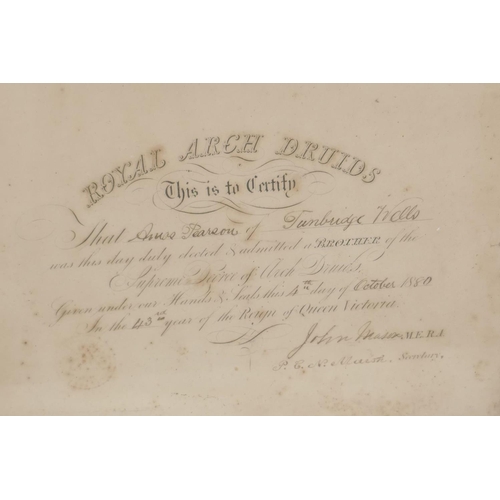 ROYAL ARCH DRUIDS
This is to Certify
That Amos Pearson of Tunbridge Wells
was this day duly elected & admitted a BROTHER of the
Supreme Degree of Arch Druids.
Given under our Hands & Seals this 4th day of October 1880
In the 43rd year of the Reign of Queen Victoria
John Mason M.E.R.A.
Secretary.